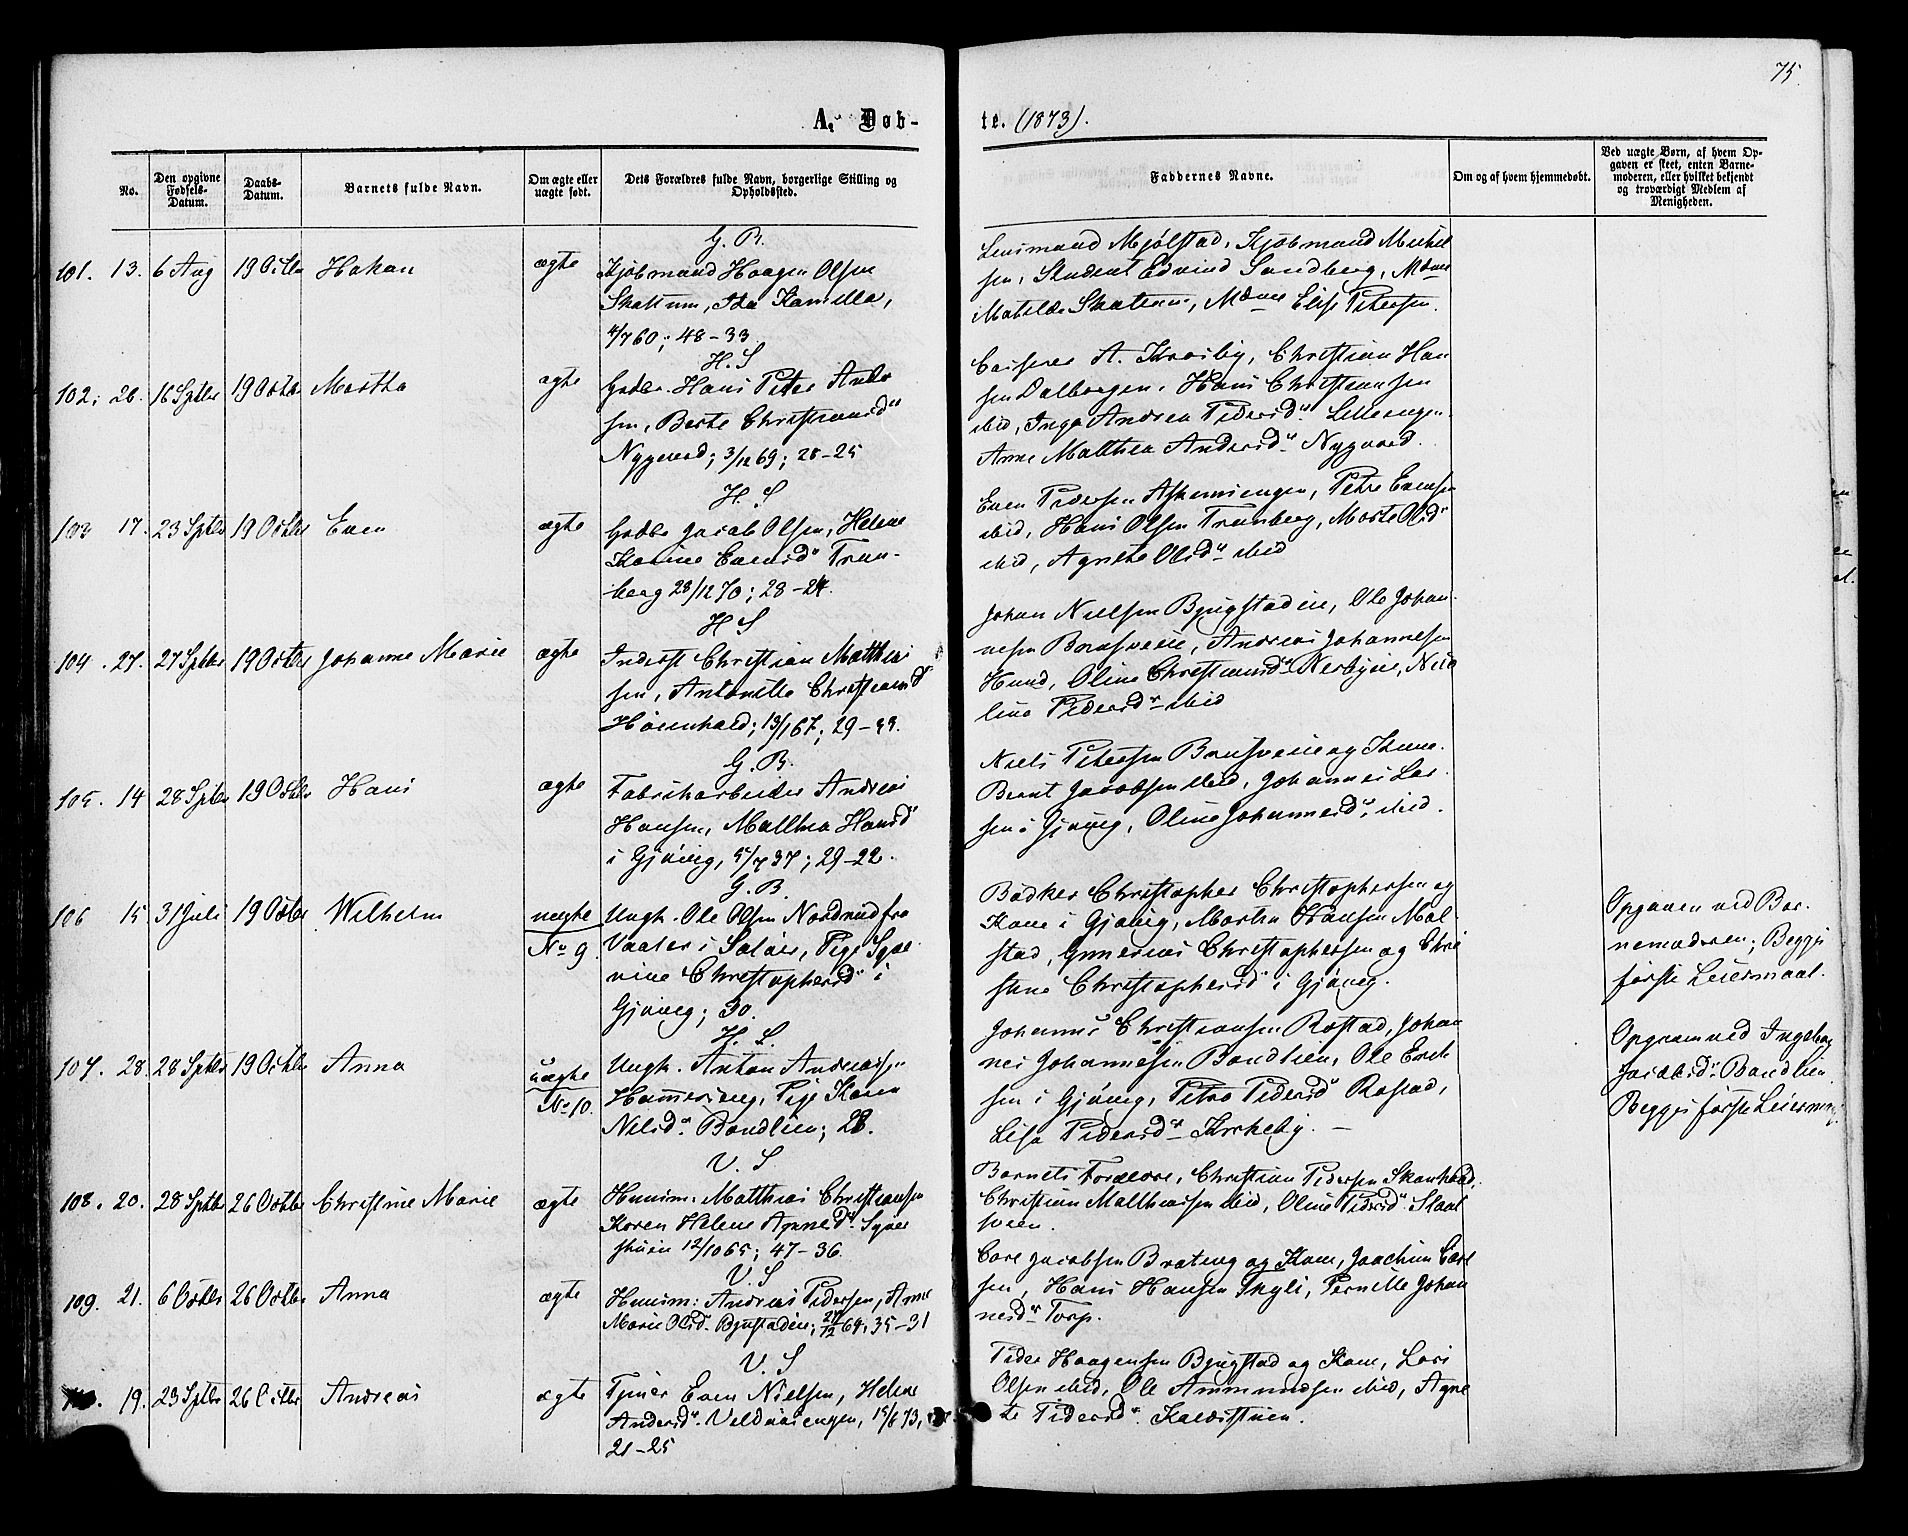 75.
A. Døb-
te. (1873).
No.
Den opgivne Fødsels-Datum.
Daabs-Datum.
Barnets fulde Navn.
Om ægte eller uægte født.
Dets Forældres fulde Navn, borgerlige Stilling og Opholdssted.
Faddernes Navne.
Om og af hvem hjemmedøbt.
Ved uægte Børn, af hvem Opgaven er skeet, enten Barnemoderen, eller hvilket bekjendt og troværdigt Medlem af Menigheden.
101. 13. 6 Aug 19 Octbr Hakan ægte
G. B.
Kjøbmand Haagen Olsen
Skattum, Ida Kamilla,
4/7 60; 48-33
Lensmand Mjølstad, Kjøbmand Mickel
sen, Student Edvind Sandberg, Md
Matilde Skattum, Elise Petersen.
102. 26. 16 Sptbr 19 Octbr Martha ægte
H. S
Gadbr. Hans Peter Ander
sen, Berte Christiansd
Nygaard; 3/12 69; 28-25
A. Kraby, Christian Han
sen Dalborgen, Hans Christiansen
ibid, Inga Andrea Pedersd Lilleengen
Anne Matthea Andersd Nygaard.
103 17. 23 Sptbr 19 Octbr Even ægte
H. S
Gadbr Jacob Olsen, Helene
Karine Evensd Tran-
berg 28/12 70; 28-24.
Even Pedersen Askeviengen, Petre Evensen
ibid, Hans Olsen Tranberg, Marte Olsd
ibid, Agnethe Olsd ibid
104. 27. 27 Sptbr 19 Octbr Johanne Marie ægte
H S
Inderst Christian Matthias
sen, Antonette Christiansd
13/1 67; 29-
Johan Nielsen Bjugstadeie, Ole Johan-
nesen Brusveeie, Andreas Johannesen
Hund, Oline Christiansd Nerbyeie, Niko
line Pedersd ibid
105. 14 28 Sptbr 19 Octbr Hans ægte
G. B.
Fabrikarbeider Andreas
Hansen, Matthea Hansd
i Gjøvig, 5/7 37; 29-22.
Niels Petersen Brusveeie og Kone.
Bernt Jacobsen ibid, Johannes Lar-
sen i Gjøvig, Oline Johannesd ibid.
106 15 31 Juli 19 Octbr Wilhelm uægte No 9.
G. B.
Ungk. Ole Olsen Nordrud fra
Vaaler i Solør, Pige
Christophersd i
Gjøvig; 30.
Bødker Christopher Christophersen og
Kone i Gjøvig, Martin Hansen Mæl-
stad, Gunerius Christophersen og Chri
stine Christophersd i Gjøvig.
Opgaven ved Bar-
nemoderen; Begges
første Leiermaal.
107. 28. 28 Sptbr 19 Octbr Anna uægte No 10.
H. S.
Ungk. Anton Andreassen
Hammereng, Pige Karen
Nilsd Bondlien; 28.
Johannes Christiansen Rostad, Johan
nes Johannesen Bondlien, Ole Erik
sen i Gjøvig, Petra Pedersd Rostad,
Lisa Pedersd Kirkeby. —
Opgaven ved Ingeborg
Jacobsd Bondlien
Begges første Leiermaal
108. 20. 28 Sptbr 26 Octbr Christine Marie ægte
V. S
Huusm: Matthias Christiansen
Karen Helene
stuen 12/10 65; 47-36.
Barnets Forældre, Christian Pedersen Skonhed,
Christian Matthiassen ibid, Oline Pedersd Slaat
sveen.
109. 21. 6 Octbr 26 Octbr Anna ægte
V. S
Huusm: Andreas Pedersen, Anne
Marie Olsd. Bjustadeie; 69; 35-31
Carl Jacobsen Brateng og Kone, Joachim Carl
sen, Hans Hansen Skyli, Pernille Johan
nesd Torp.
19. 23 Sptbr 26 Octbr Andreas ægte
V. S
Tjener Even Nielsen, Helene
Andersd. 15/6 73;
21-25
Peder Haagensen Bjugstad og Kone, Lars
Olsen ibid, Ole Ammundsen ibid, Agne
te Pedersd Kaldstuen.